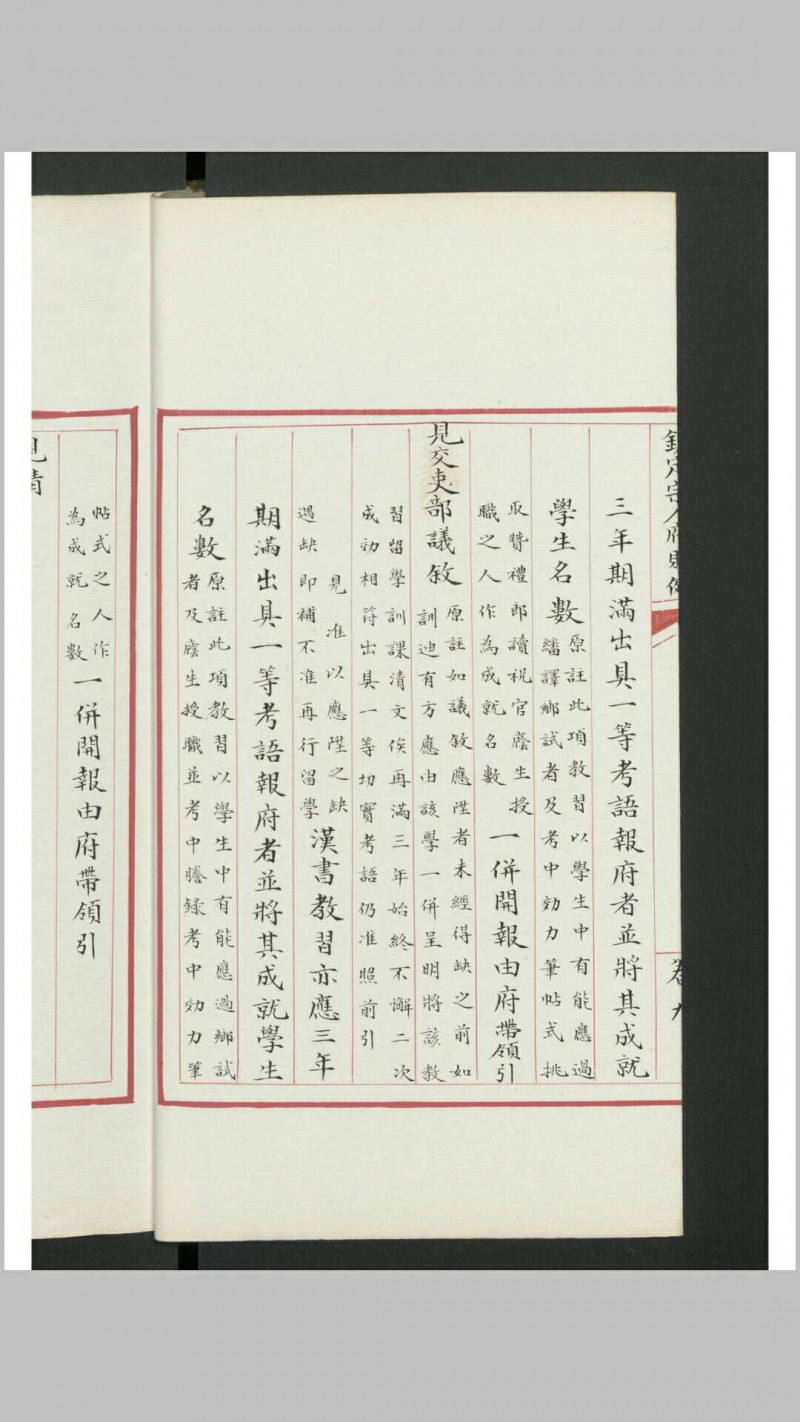 欽定宗人府則例 卷九
三年期滿出具一等考語報府者並將其成就
學生名數
原註此項教習以學生中有能應過
繙譯鄉試者及考中効力筆帖式挑
取贊禮郎讀祝官廕生授
職之人作為成就名數
一併開報由府帶領引
見交吏部議敘
原註如議敘應陞者未經得缺之前如
訓迪有方應由該學一併呈明將該教
習留學訓課清文俟再滿三年始終不懈二次
成効相符出具一等切實考語仍准照前引
見准以應陞之缺
遇缺即補不准再行留學
漢書教習亦應三年
期滿出具一等考語報府者並將其成就學生
名數
原註此項教習以學生中有能應過鄉試
者及廕生授職並考中謄錄考中効力筆
帖式之人作
為成就名數
一併開報由府帶領引